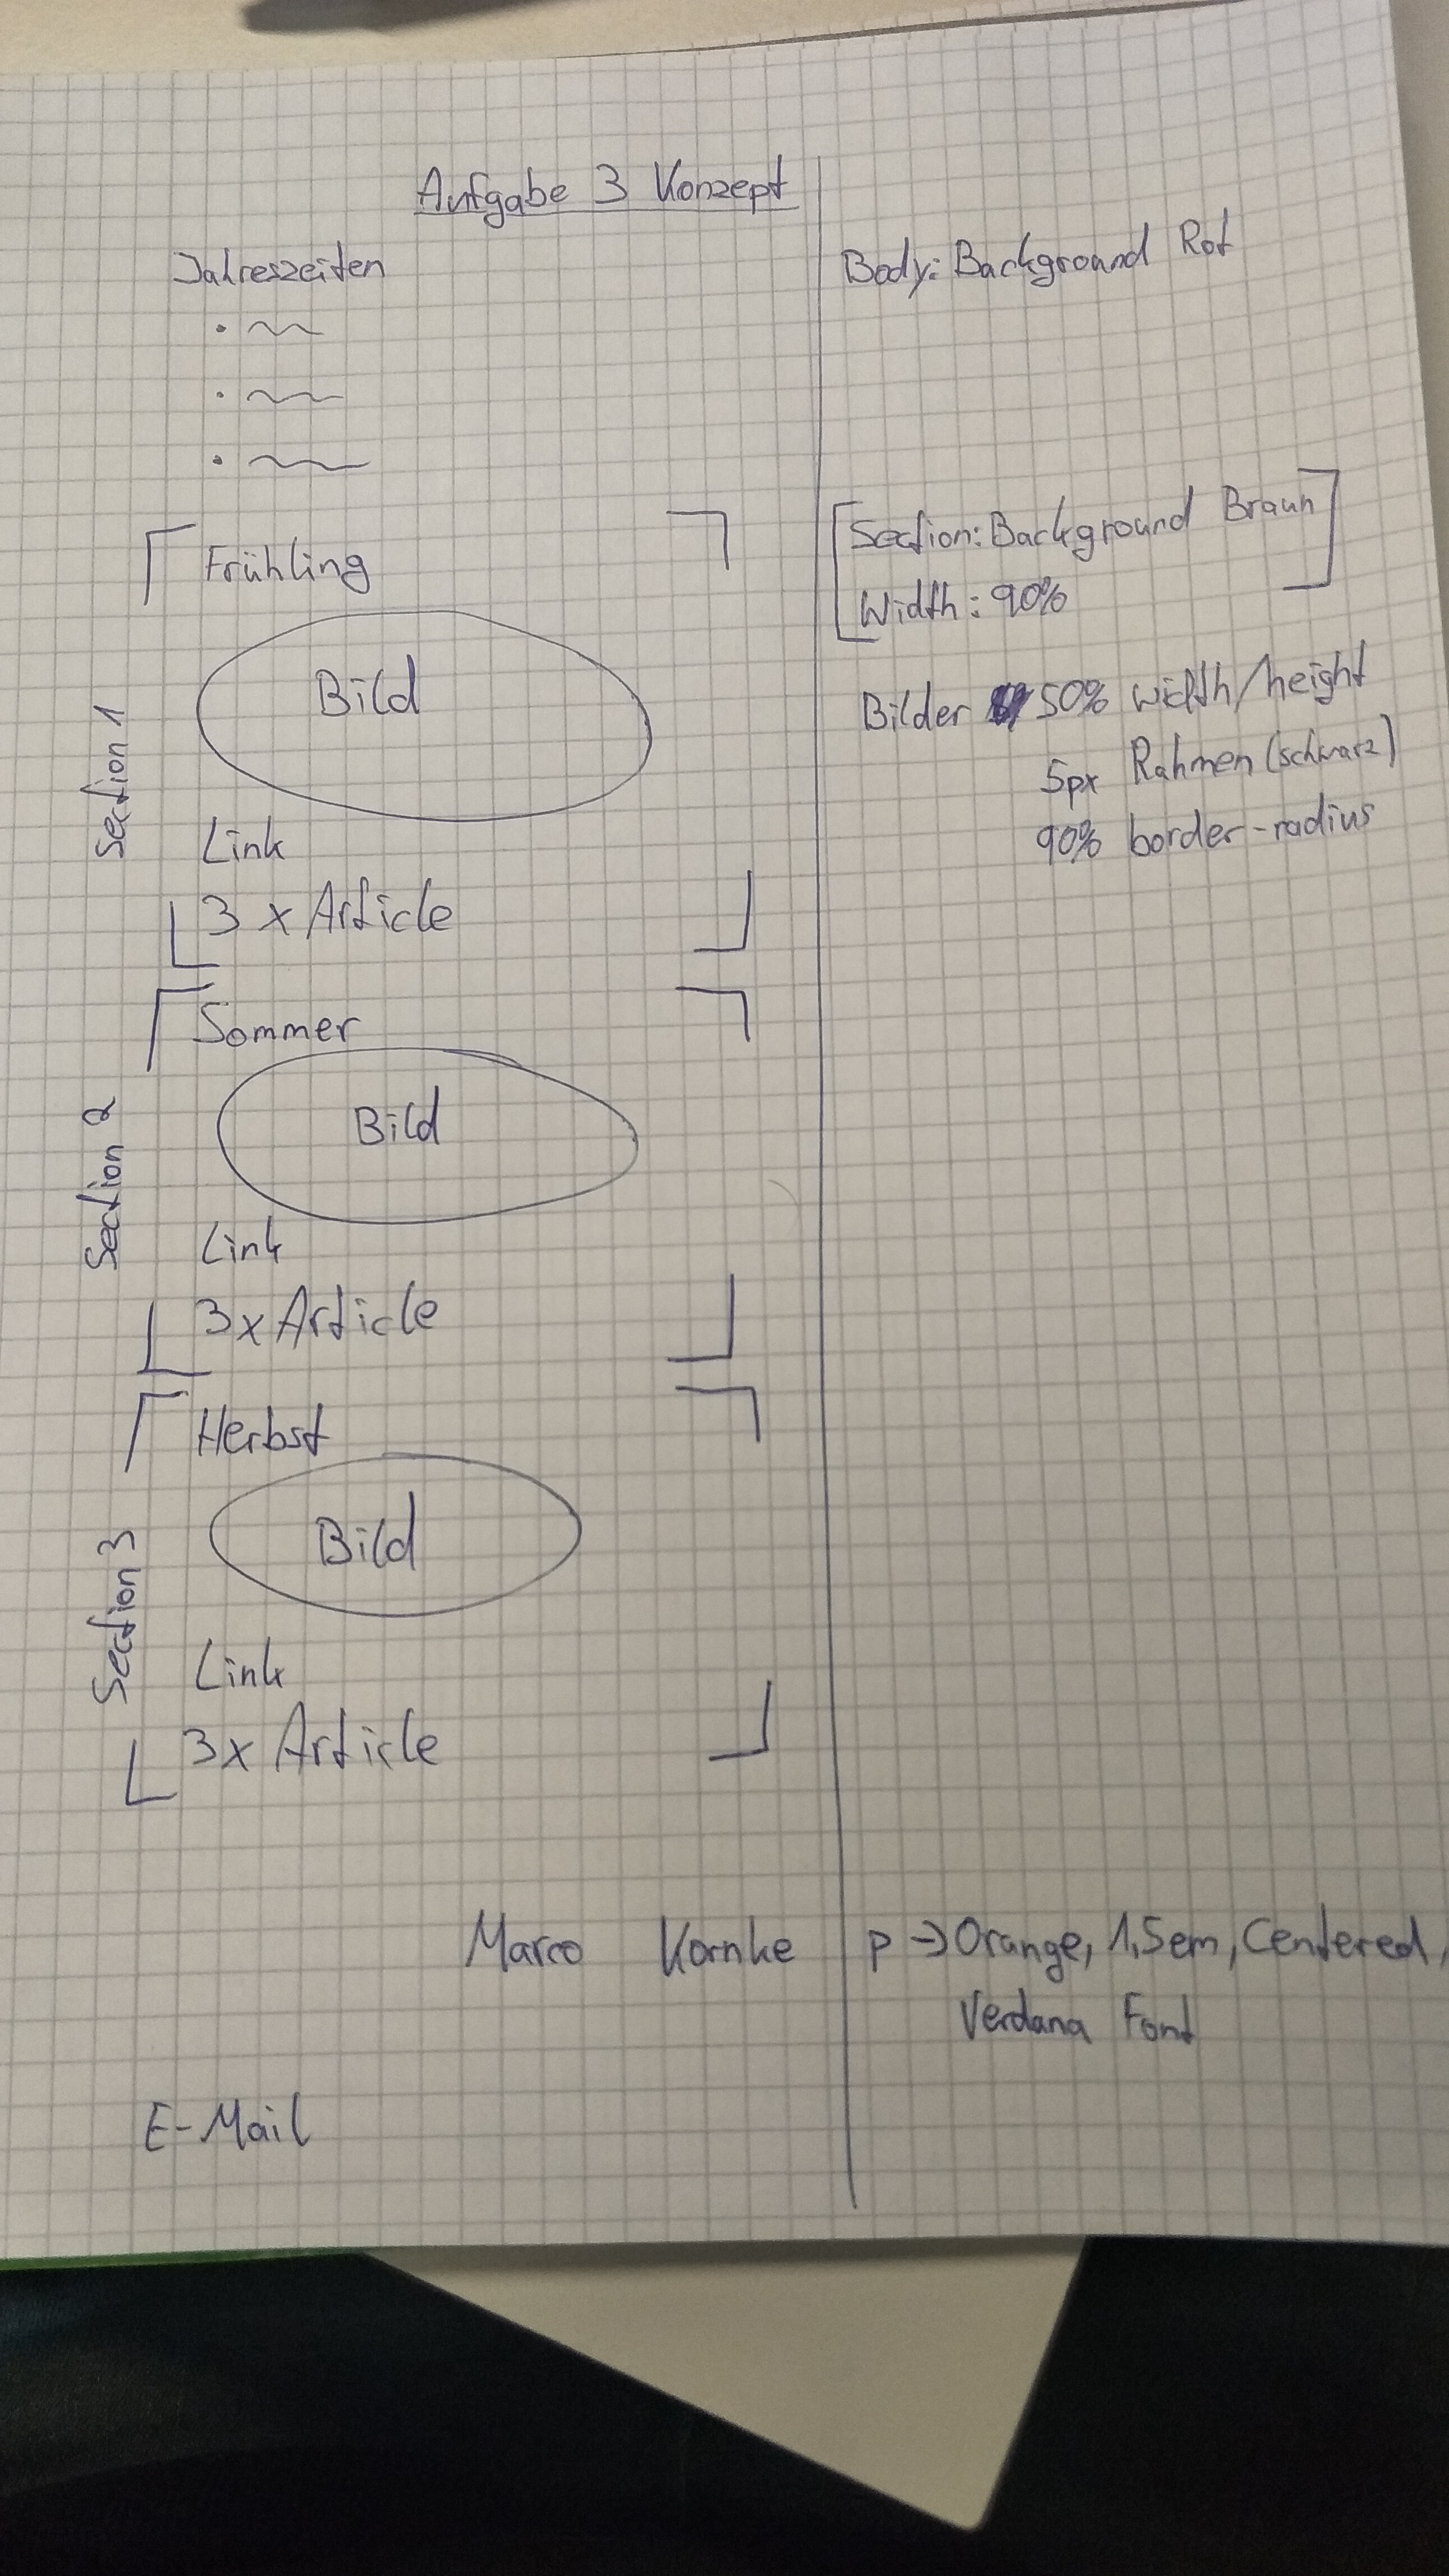 Aufgabe 3 Konzept
Jahreszeiten
Frühling
Bild
Link
3 x Article
Section 1
Sommer
Bild
Link
3x Article
Section 2
Herbst
Bild
Link
3x Article
Section 3
Marco Kornke
E-Mail
Body: Background Rot
Section: Background Braun
Width: 90%
Bilder 50% width/height
5px Rahmen (schwarz)
90% border-radius
p -> Orange, 1,5em, Centered,
Verdana Font